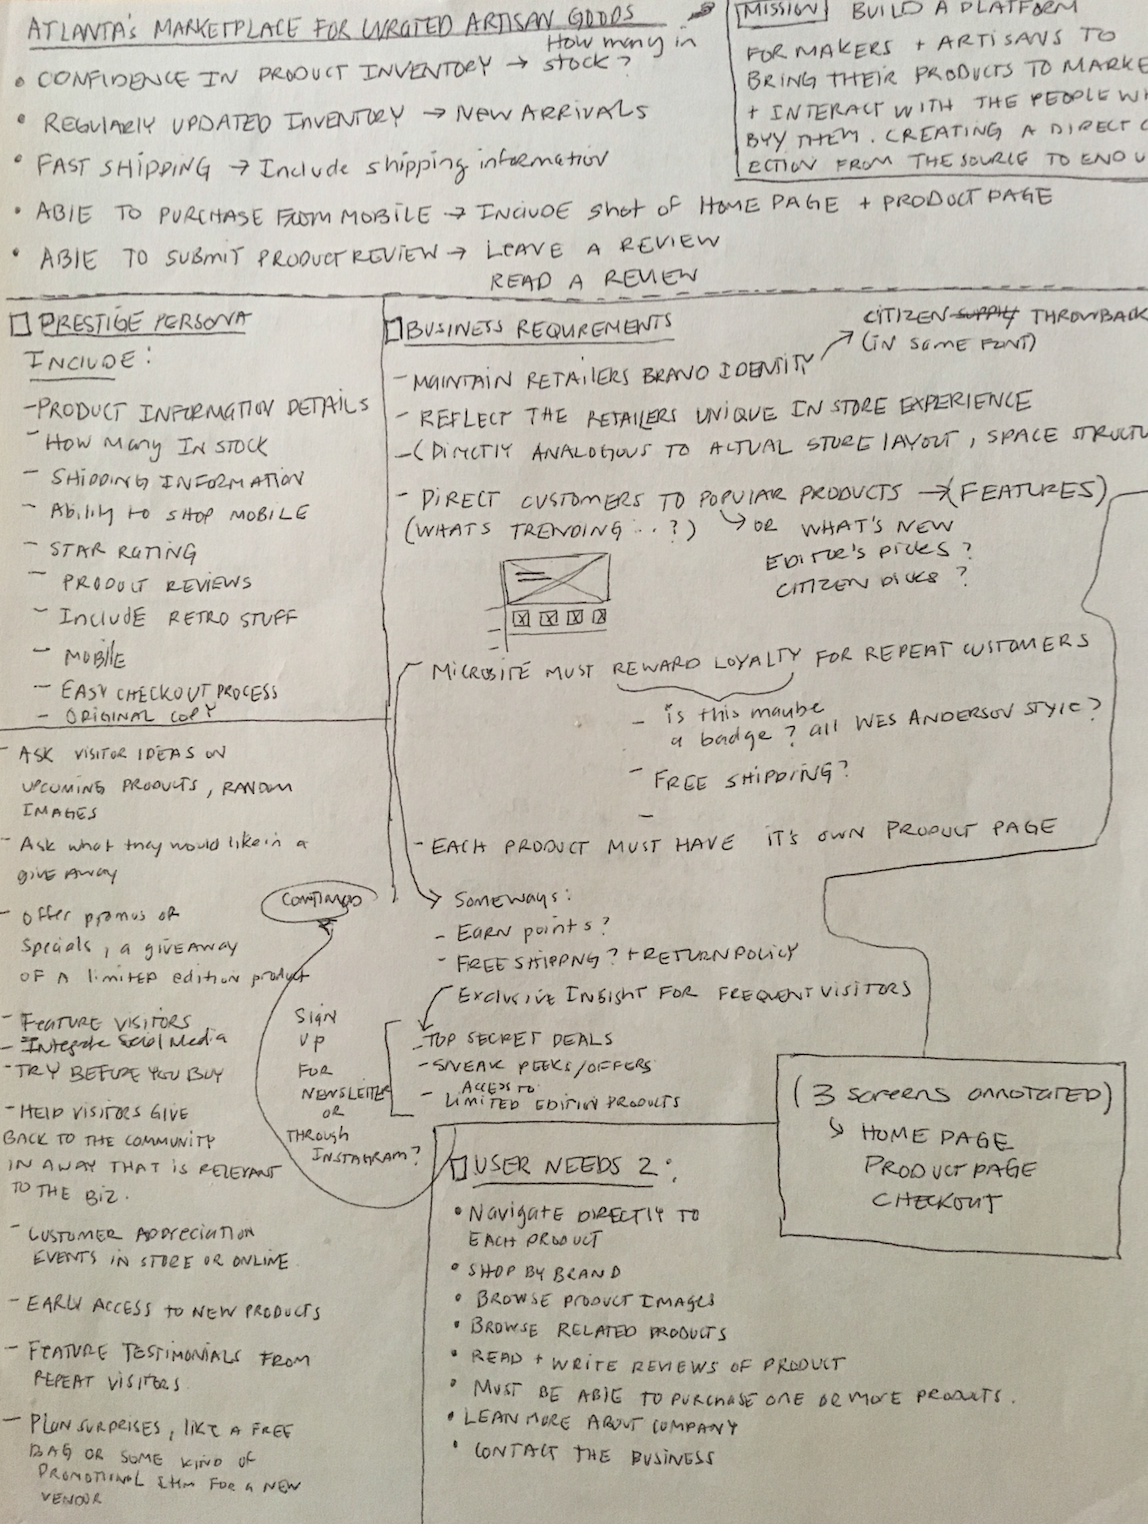 ATLANTA'S MARKETPLACE FOR CURATED ARTISAN GOODS
• CONFIDENCE IN PRODUCT INVENTORY → How many in stock?
• REGULARLY UPDATED INVENTORY → NEW ARRIVALS
• FAST SHIPPING → Include shipping information
• ABLE TO PURCHASE FROM MOBILE → INCLUDE shot of HOME PAGE + PRODUCT PAGE
• ABLE TO SUBMIT PRODUCT REVIEW → LEAVE A REVIEW
READ A REVIEW
MISSION BUILD A PLATFORM
FOR MAKERS + ARTISANS TO
BRING THEIR PRODUCTS TO MARKE
+ INTERACT WITH THE PEOPLE WH
BUY THEM. CREATING A DIRECT C
ECTION FROM THE SOURCE TO END U
PRESTIGE PERSONA
INCLUDE:
- PRODUCT INFORMATION DETAILS
- HOW MANY IN STOCK
- SHIPPING INFORMATION
- Ability to SHOP MOBILE
- STAR RATING
- PRODUCT REVIEWS
- Include RETRO STUFF
- MOBILE
- EASY CHECKOUT PROCESS
- ORIGINAL COPY
- ASK VISITOR IDEAS ON
UPCOMING PRODUCTS, RANDOM
IMAGES
- Ask what they would like in a
give AWAY
- Offer promos or
specials, a giveaway
OF A limited edition product
- FEATURE VISITORS
- Integrate Social Media
- TRY BEFORE YOU BUY
- HELP VISITORS GIVE
BACK TO THE COMMUNITY
IN A WAY THAT IS RELEVANT
TO THE BIZ.
- CUSTOMER APPRECIATION
EVENTS IN STORE OR ONLINE
- EARLY ACCESS TO NEW PRODUCTS
- FEATURE TESTIMONIALS FROM
REPEAT VISITORS
- PLAN SURPRISES, LIKE A FREE
BAG OR SOME KIND OF
PROMOTIONAL item FOR A NEW
VENDOR
BUSINESS REQUIREMENTS
CITIZEN SUPPLY THROWBACK
(IN SAME FONT)
- MAINTAIN RETAILERS BRAND IDENTITY
- REFLECT THE RETAILERS UNIQUE IN STORE EXPERIENCE
- (DIRECTLY ANALOGOUS TO ACTUAL STORE LAYOUT, SPACE STRUCTU
- DIRECT CUSTOMERS TO POPULAR PRODUCTS → (FEATURES)
(WHATS TRENDING...?) OR WHAT'S NEW
EDITOR'S PICKS?
CITIZEN PICKS?
MICROSITE MUST REWARD LOYALTY FOR REPEAT CUSTOMERS
- is this maybe
a badge? all WES ANDERSON STYLE?
- FREE SHIPPING?
-
- EACH PRODUCT MUST HAVE IT'S OWN PRODUCT PAGE
CONTINUED
SOMEWAYS:
- EARN points?
- FREE SHIPPNG? + RETURN POLICY
Exclusive INSIGHT FOR FREQUENT VISITORS
- TOP SECRET DEALS
- SNEAK PEEKS/OFFERS
- ACCESS TO
LIMITED EDITION PRODUCTS
SIGN
UP
FOR
NEWSLETTER
OR
THROUGH
INSTAGRAM?
(3 screens annotated)
HOME PAGE
PRODUCT PAGE
CHECKOUT
USER NEEDS 2:
• Navigate DIRECTLY TO
EACH PRODUCT
• SHOP BY BRAND
• BROWSE PRODUCT IMAGES
• BROWSE RELATED PRODUCTS
• READ + WRITE REVIEWS OF PRODUCT
• MUST BE ABLE TO PURCHASE ONE OR MORE PRODUCTS.
• LEAN MORE ABOUT COMPANY
• CONTACT THE BUSINESS